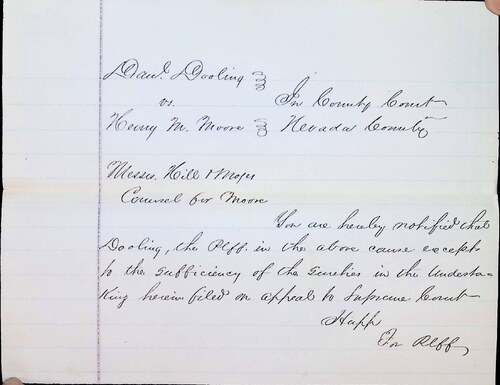 Danl. Dooling
vs. In County Court
Henry M. Moore Nevada County
Messrs. Hill &
Counsel for Moore
You are hereby notified that
Dooling, the Plff. in the above cause excepts
to the sufficiency of the Sureties in the Underta-
king herein filed on appeal to Supreme Court
Hupp
For Plff